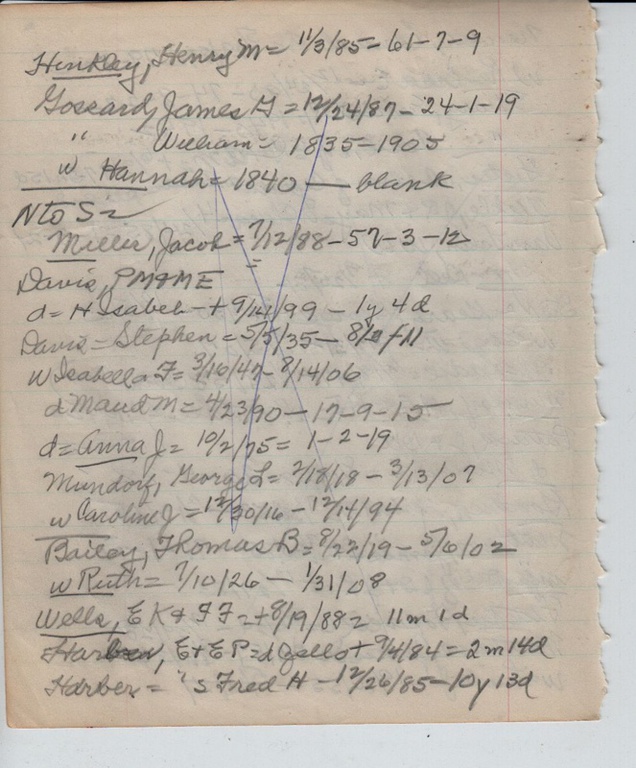 Hinkley, Henry M = 11/3/85 = 61-7-9
Gossard, James G = 12/24/87 - 24-1-19
" William = 1835-1905
w Hannah = 1840 — blank
N to S =
Miller, Jacob = 7/12/88 - 57-3-12
Davis, PM & ME
d = H Isabel - + 9/14/99 - 1y 4d
Davis = Stephen = 5/5/35 -
w Isabella F = 3/16/47 - 8/14/06
d Maud M = 4/23/90 - 17-9-15
d = Anna J = 10/2/75 = 1-2-19
Mundorf, George L = 2/18/18 - 3/13/07
w Caroline J = 12/30/16 - 12/14/94
Bailey, Thomas B = 8/22/19 - 5/6/02
w Ruth = 7/10/26 - 1/31/08
Wells, E K & F F = + 8/19/88 = 11m 1d
Harber, E + E P = d + 9/4/84 = 2m 14d
Harber = " s Fred H - 12/26/85 - 10y 13d